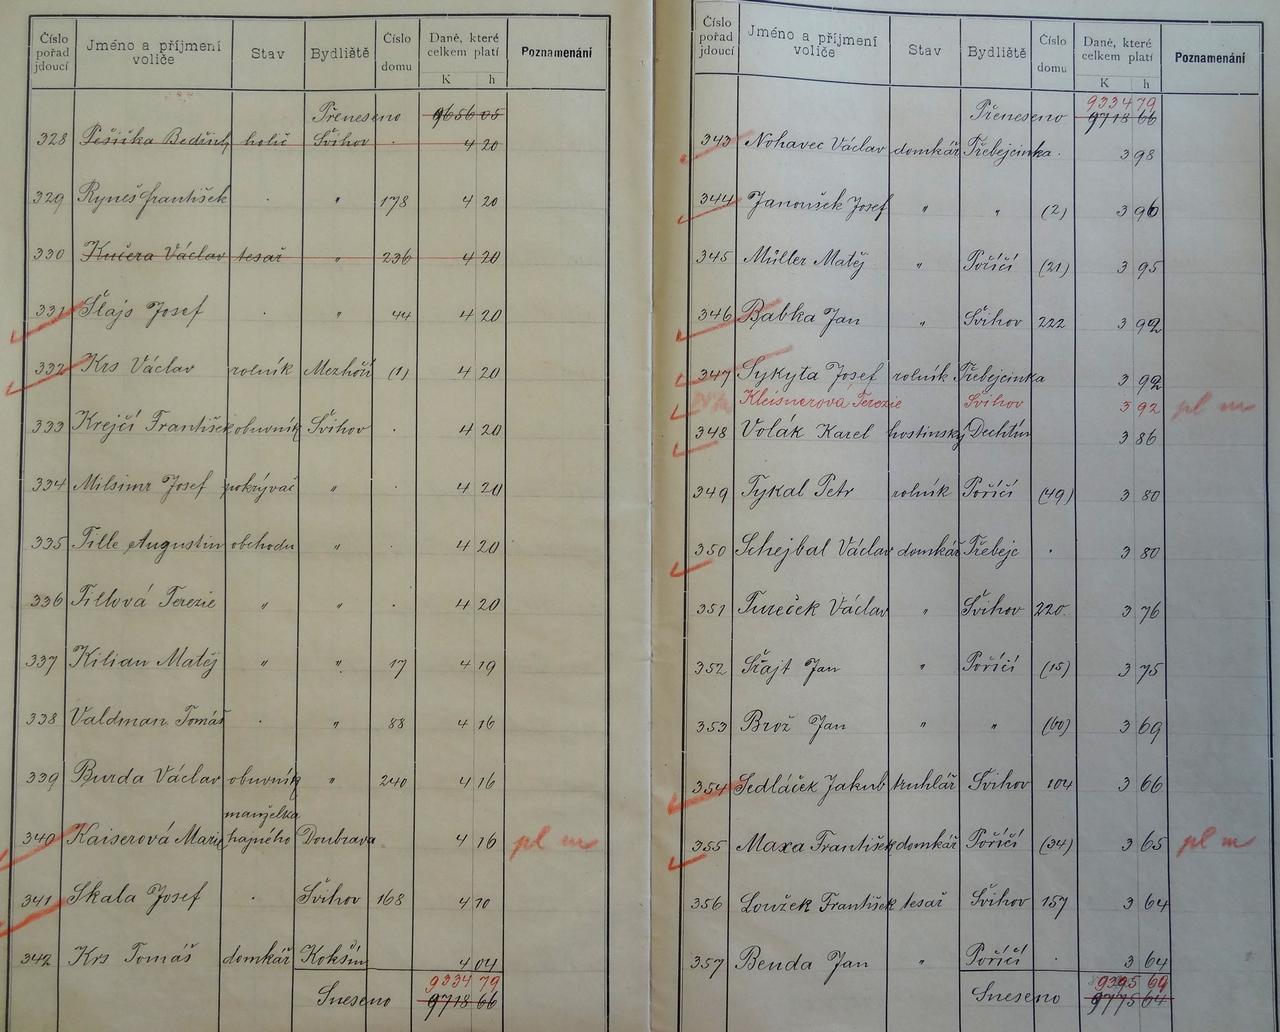 Číslo pořad jdoucí Jméno a příjmení voliče Stav Bydliště Číslo domu Daně, které celkem platí K h Poznamenání
Přeneseno 9656 05
328 Pešička Bedřich holič Švihov . 4 20
329 Ryneš František . " 178 4 20
330 Kučera Václav tesař " 236 4 20
331 Šlajs Josef . " 44 4 20
332 Krs Václav rolník Mezhoří (1) 4 20
333 Krejčí František obuvník Švihov . 4 20
334 Milsimr Josef pokrývač " . 4 20
335 Tille Augustin obchodu " 4 20
336 Tillová Terezie " " . 4 20
337 Kilian Matěj " " 17 4 19
338 Valdman Tomáš . " 88 4 16
339 Burda Václav obuvník " 240 4 16
manželka
340 Kaiserová Marie hajného Doubrava 4 16 pl m
341 Skala Josef . Švihov 168 4 10
342 Krs Tomáš domkář Kokšín 4 04
9334 79
Sneseno 9718 66
Číslo pořad jdoucí Jméno a příjmení voliče Stav Bydliště Číslo domu Daně, které celkem platí K h Poznamenání
9334 79
Přeneseno 9718 66
343 Nohavec Václav domkář Třebejcinka . 3 98
344 Janoušek Josef " " (2) 3 96
345 Müller Matěj " Poříčí (21) 3 95
346 Babka Jan " Švihov 222 3 92
347 Sykyta Josef rolník Třebejcinka 3 92
Kleisnerová Terezie Švihov 3 92 pl m
348 Volák Karel hostinský Dechtín 3 86
349 Tykal Petr rolník Poříčí (49) 3 80
350 Schejbal Václav domkář Třebejc . 3 80
351 Tureček Václav " Švihov 220 3 76
352 Šlajt Jan " Poříčí (15) 3 75
353 Brož Jan " " (60) 3 69
354 Sedláček Jakub truhlář Švihov 104 3 66
355 Maxa František domkář Poříčí (34) 3 65 pl m
356 Loužek František tesař Švihov 157 3 64
357 Benda Jan " Poříčí . 3 64
9395 69
Sneseno 9775 64